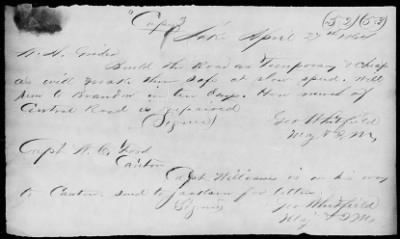 "Copy" (52)(53)
April 27th 1864
Build the Road as Temporary & cheap
as will make them safe at slow speed. Will
run to Brandon in ten days. How much of
Central Road is repaired
(Signed) Geo Whitfield
Maj & QM
Capt W. C. Ford
Canton
Capt Williams is on his way
to Canton send to Jackson for letter
(Signed) Geo Whitfield
Maj & QM